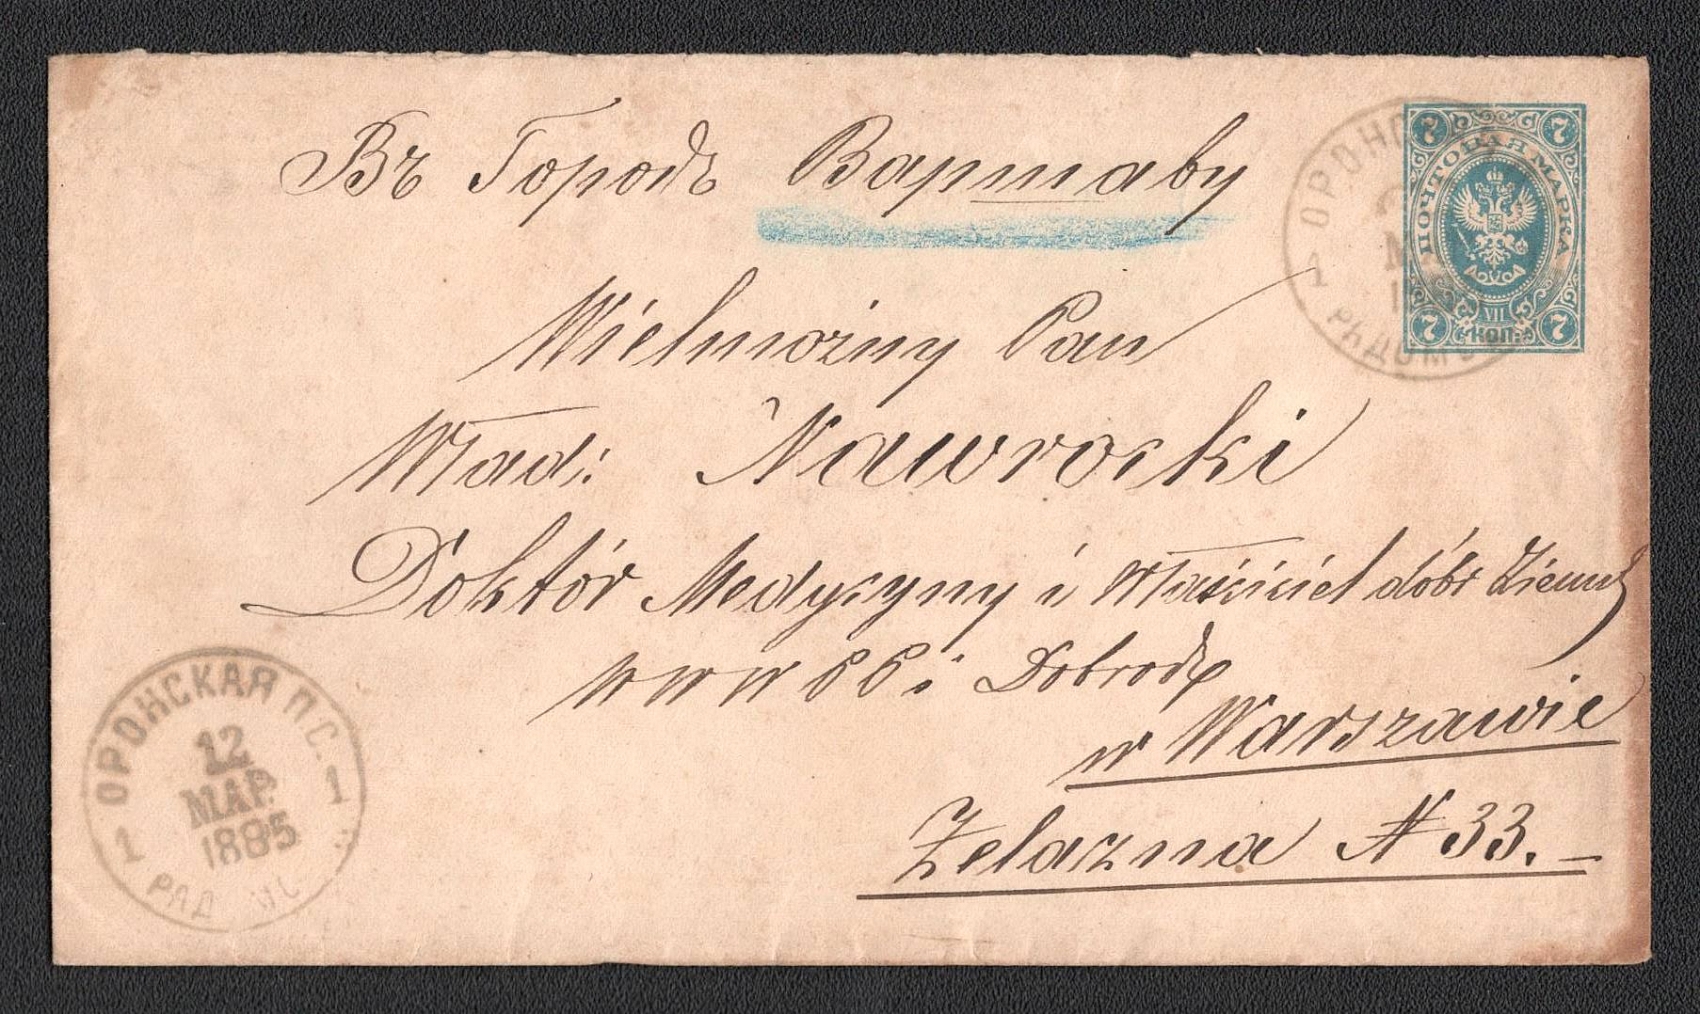 Въ Городъ Варшаву
Wielmożny Pan
Wład: Nawrocki
Doktór Medycyny i Właściciel dóbr Ziemsk
w W Dobrodz
w Warszawie
Żelazna N 33.
7 7
ПОЧТОВАЯ МАРКА
VII
7 КОП. 7
ОРОНСКАЯ П.С.
12
МАР.
1885
1 1
РАД